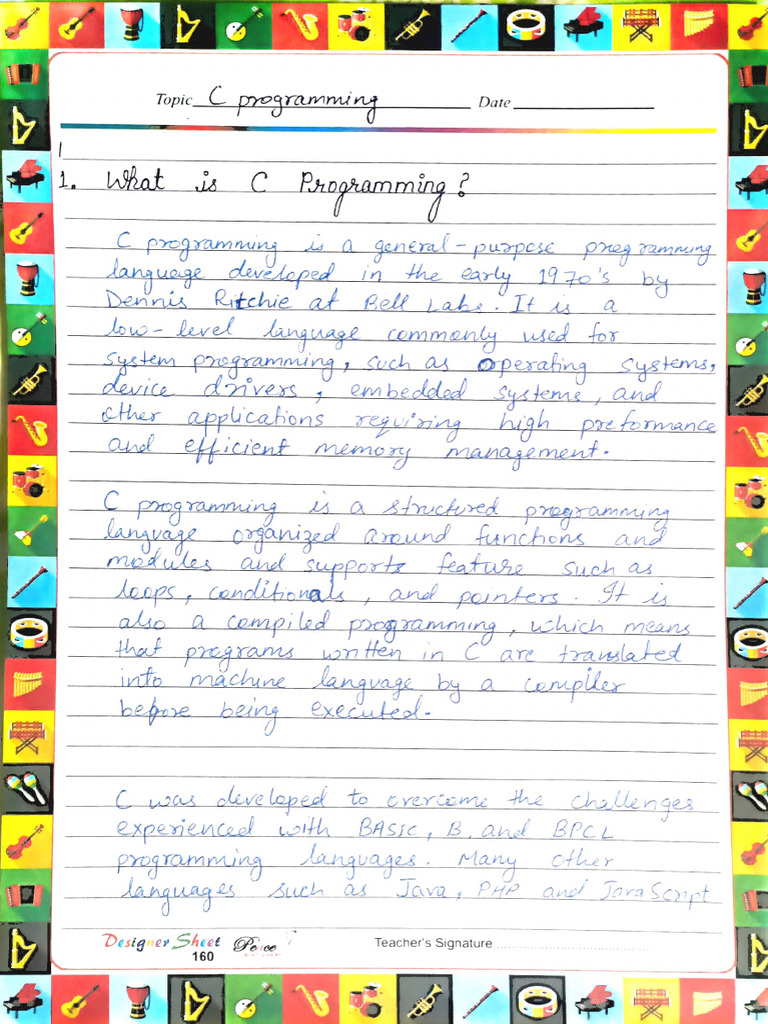 Topic C programming Date
1
1. What is C Programming?
C programming is a general-purpose programming
language developed in the early 1970's by
Dennis Ritchie at Bell Labs. It is a
low-level language commonly used for
system programming, such as operating systems,
device drivers, embedded systems, and
other applications requiring high preformance
and efficient memory management.
C programming is a structured programming
language organized around functions and
modules and supports feature such as
loops, conditionals, and pointers. It is
also a compiled programming, which means
that programs written in C are translated
into machine language by a compiler
before being executed.
C was developed to overcome the challenges
experienced with BASIC, B, and BPCL
programming languages. Many other
languages such as Java, PHP and JavaScript
Designer Sheet
160
Teacher's Signature